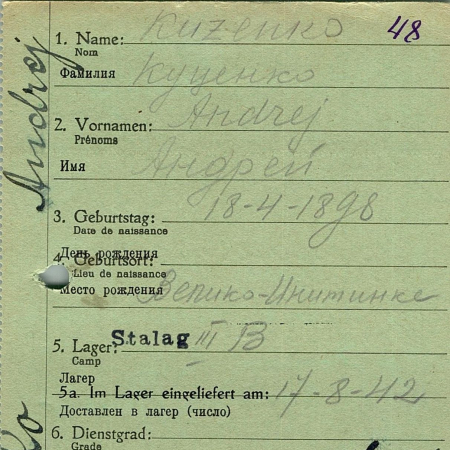 48
1. Name: Kuzenko
Nom
Фамилия Куценко
Andrej
2. Vornamen: Andrej
Prénoms
Имя Андрей
3. Geburtstag: 18-4-1898
Date de naissance
День рождения
4. Geburtsort:
Lieu de naissance
Место рождения
5. Lager: Stalag III B
Camp
Лагер
5a. Im Lager eingeliefert am: 17-8-42
Доставлен в лагер (число)
6. Dienstgrad:
Grade